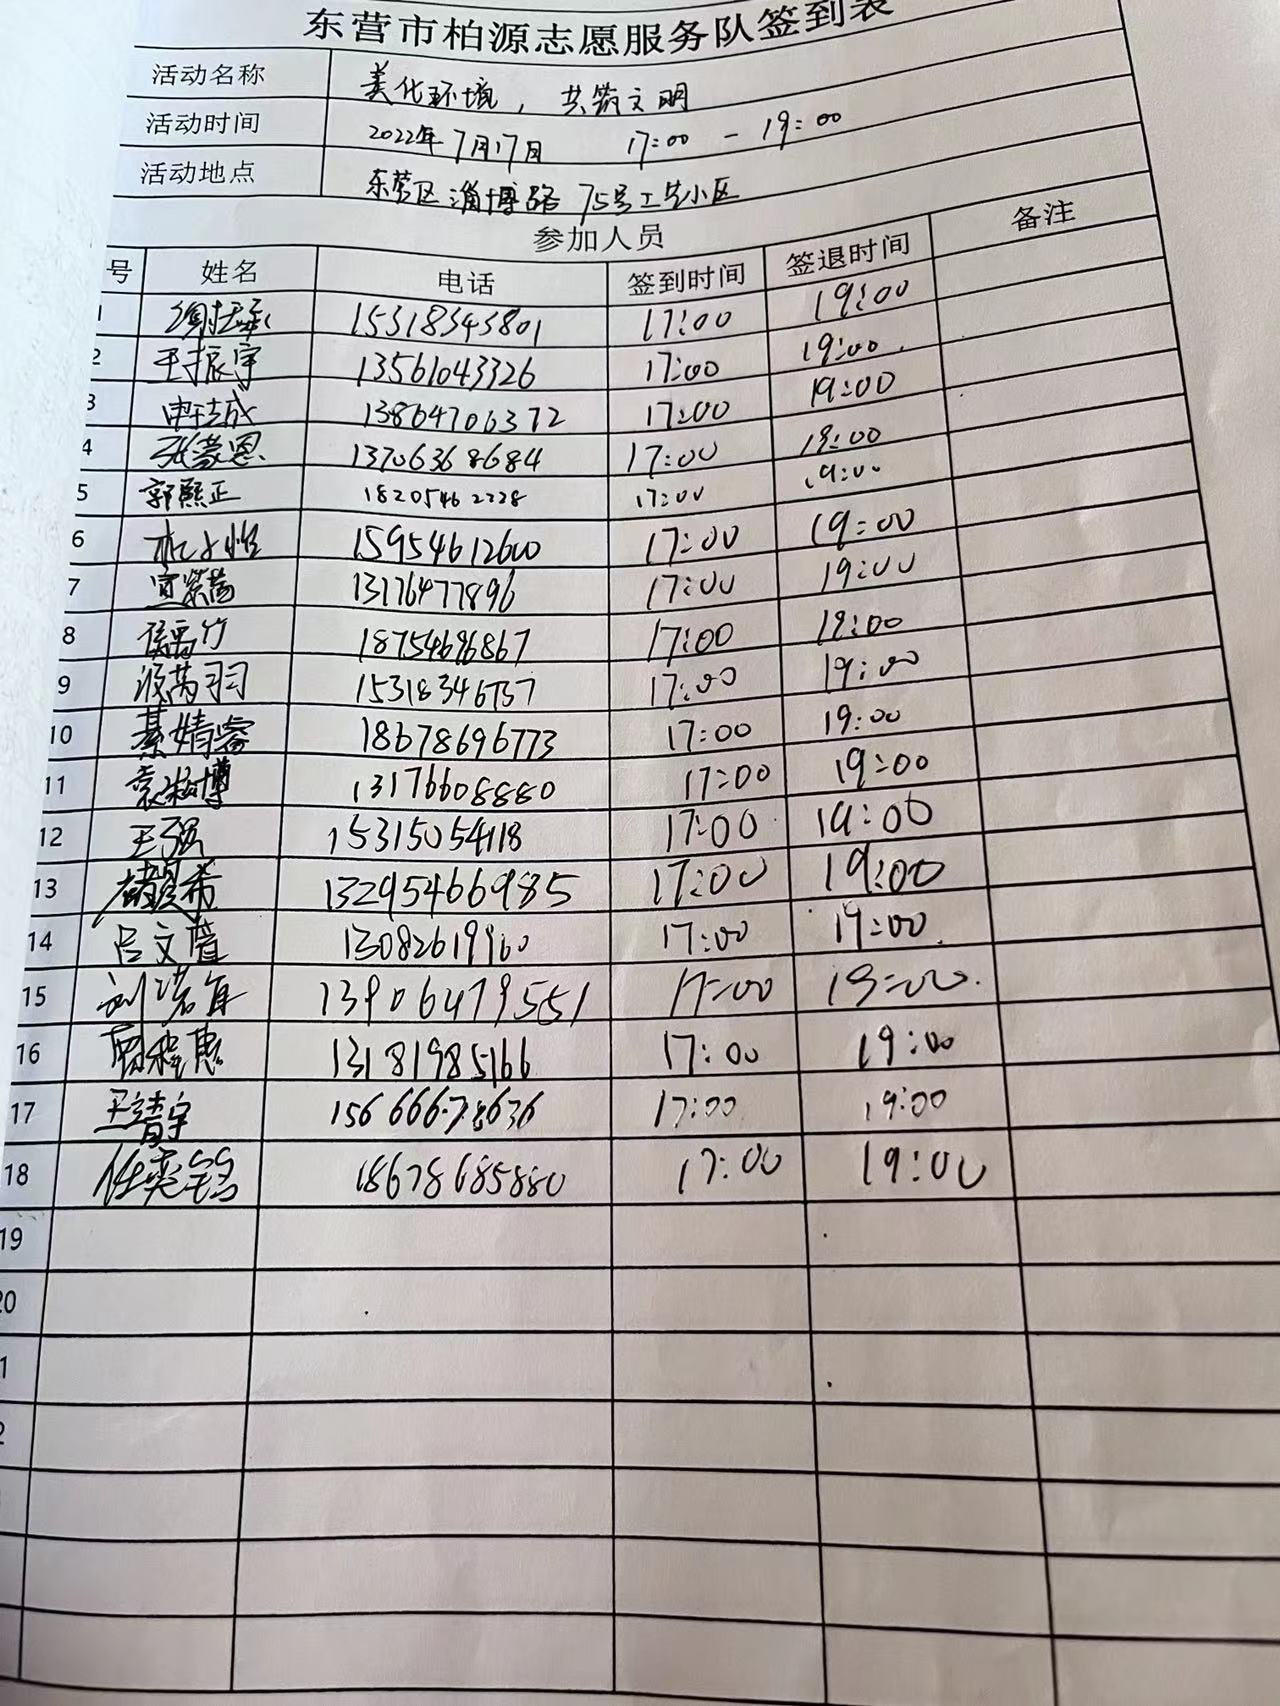 东营市柏源志愿服务队签到表
活动名称 美化环境，共筑文明
活动时间 2022年7月17日 17:00 - 19:00
活动地点 东营区淄博路75号工艺小区
参加人员 备注
号 姓名 电话 签到时间 签退时间
1 15318343801 17:00 19:00
2 王振宇 13561043326 17:00 19:00.
3 13864706372 17:00 19:00
4 张蒙恩 13706368684 17:00 19:00
5 郭熙正 18205462228 17:00 19:00
6 15954612600 17:00 19:00
7 13176477896 17:00 19:00
8 侯禹竹 18754696867 17:00 19:00
9 15318346737 17:00 19:00
10 綦婧睿 18678696773 17:00 19:00
11 13176608880 17:00 19:00
12 王强 15315054118 17:00 19:00
13 13295466985 17:00 19:00
14 吕文萱 13082619960 17:00 19:00.
15 13906479551 17:00 19:00.
16 13181985166 17:00 19:00
17 王靖宇 15666678636 17:00 19:00
18 18678685880 17:00 19:00
19
20
1
2